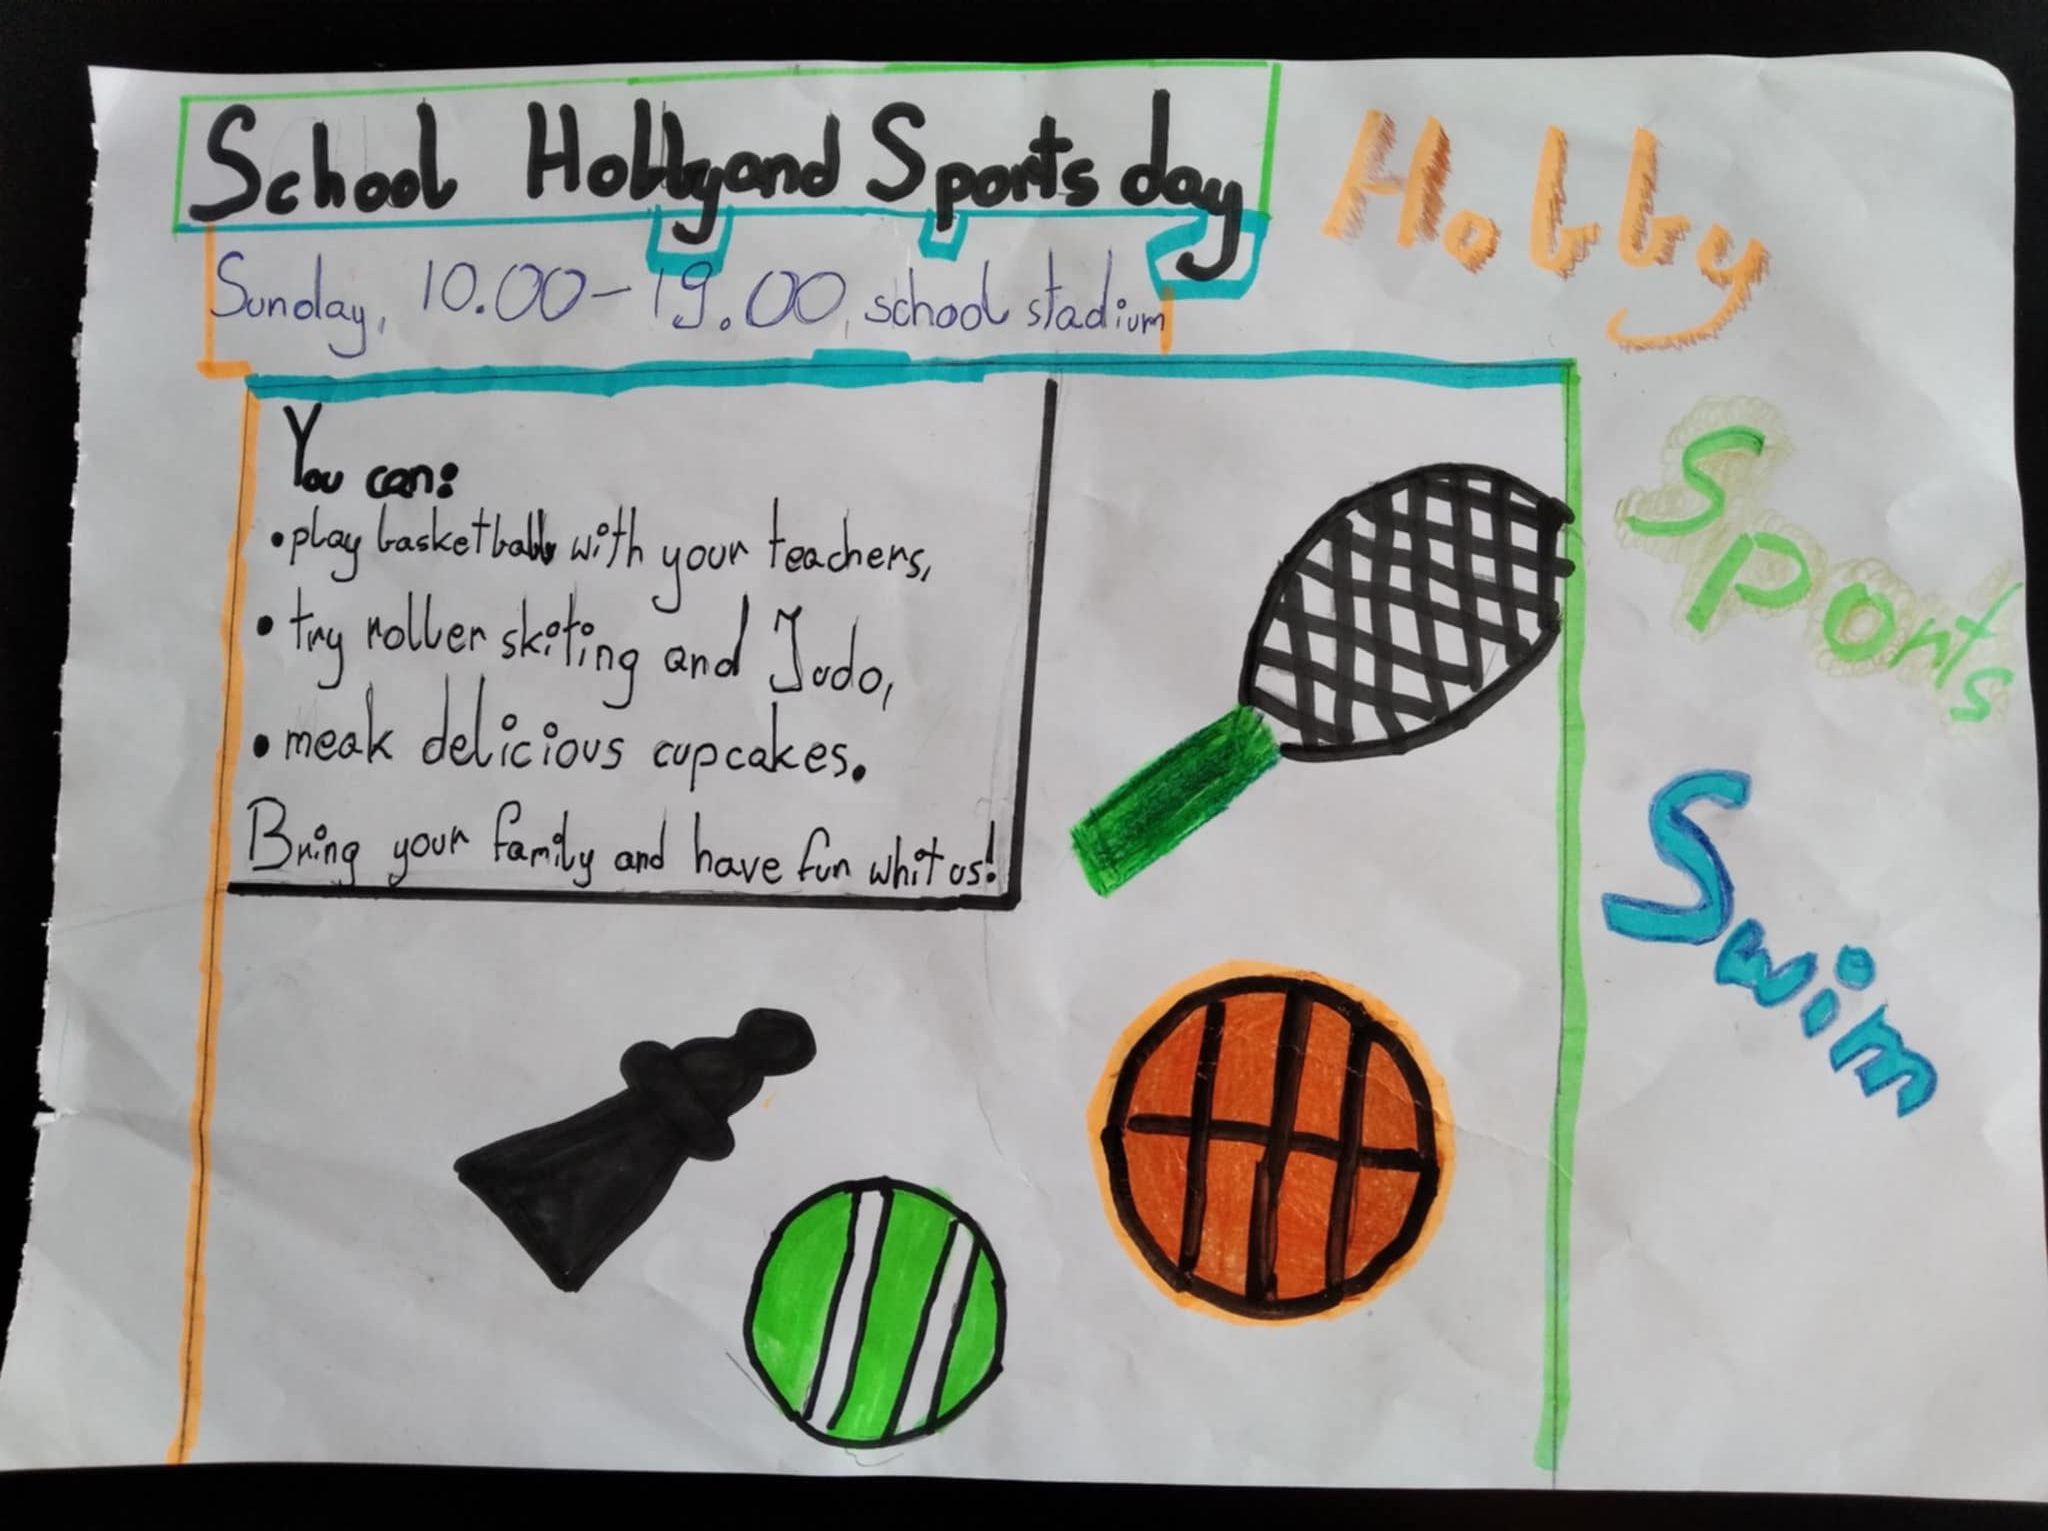 School Hobby and Sports day
Sunday, 10.00-19.00, school stadium
You can:
• play basketball with your teachers,
• try roller skiting and Judo,
• meak delicious cupcakes.
Bring your family and have fun whit us!
Hobby
Sports
Swim